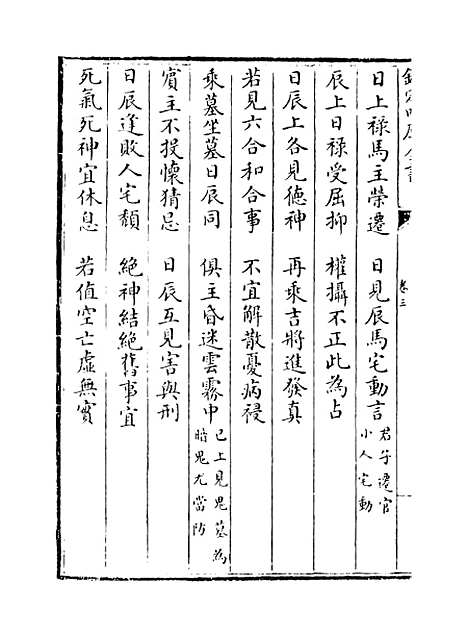 欽定四庫全書
卷三
日上祿馬主榮遷　日見辰馬宅動言君子遷官小人宅動
辰上日祿受屈抑　權攝不正此為占
日辰上各見德神　再乘吉將進發真
若見六合和合事　不宜解散憂病祲
乘墓坐墓日辰同　俱主昏迷雲霧中已上見鬼墓為暗鬼尤當防
賓主不投懷猜忌　日辰互見害與刑
日辰逢敗人宅頹　絶神結絶舊事宜
死氣死神宜休息　若值空亡虛無實